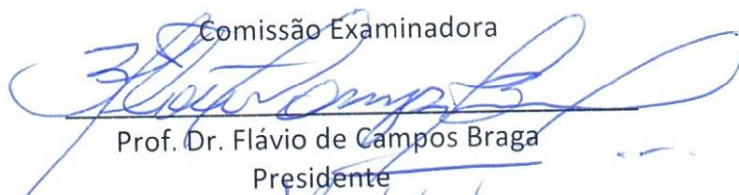 Comissão Examinadora
Prof. Dr. Flávio de Campos Braga
Presidente